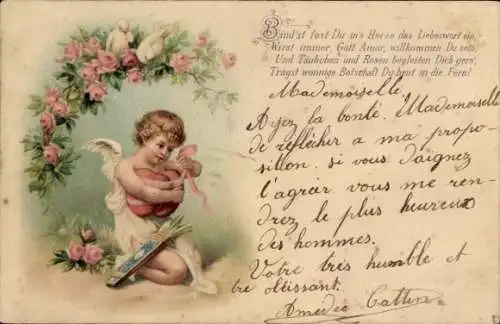 Bind'st fest Du in's Herze das Liebeswort ein,
Wirst immer, Gott Amor, willkommen Du sein
Und Täubchen und Rosen begleiten Dich gern,
Trägst wonnige Botschaft Du heut in die Fern!
Mademoiselle,
Ayez la bonté, Mademoiselle
de réflécher a ma propo-
sillon. si vous daignez
l'agréer vous me ren-
drez le plus heureux
des hommes.
Votre très humble et
tre obéissant.
Amedée Cattin